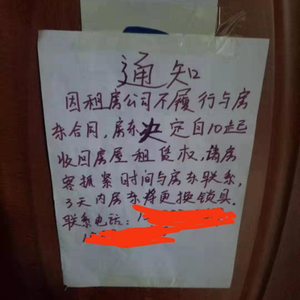 通知
因租房公司不履行与房
东合同，房东决定自10起
收回房屋租赁权，请房
客抓紧时间与房东联系，
3天内房东将更换锁具.
联系电话：1